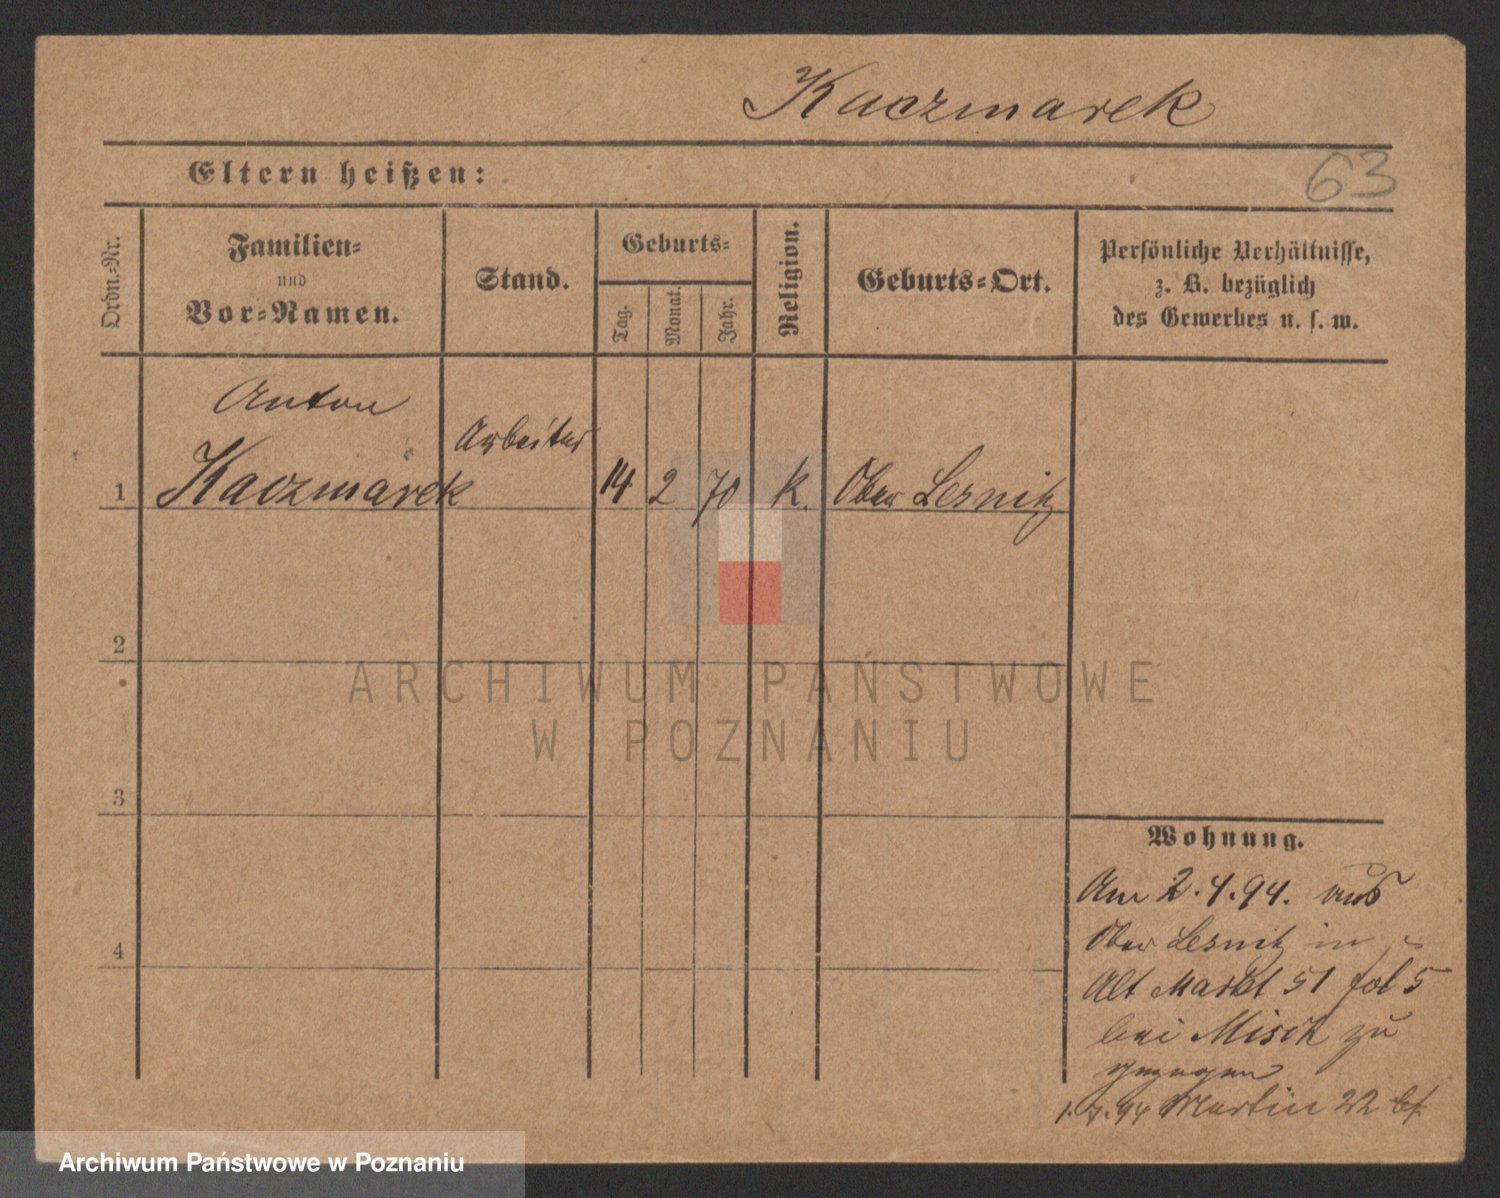 Kaczmarek
Eltern heißen:
63
Ordn.-Nr.
Familien-
und
Vor-Namen.
Stand.
Geburts-
Tag.
Monat.
Jahr.
Religion.
Geburts-Ort.
Persönliche Verhältnisse,
z. B. bezüglich
des Gewerbes u. s. w.
Anton
Kaczmarek
Arbeiter
1
14
2
70
K.
Ober Lesnitz
2
ARCHIWUM PAŃSTWOWE
W POZNANIU
3
Wohnung.
Am 2.4.94. aus
Ober Lesnitz in
4
Alt Markt 51
bei Misch zu
gezogen
1.7.94 Martin 22
Archiwum Państwowe w Poznaniu